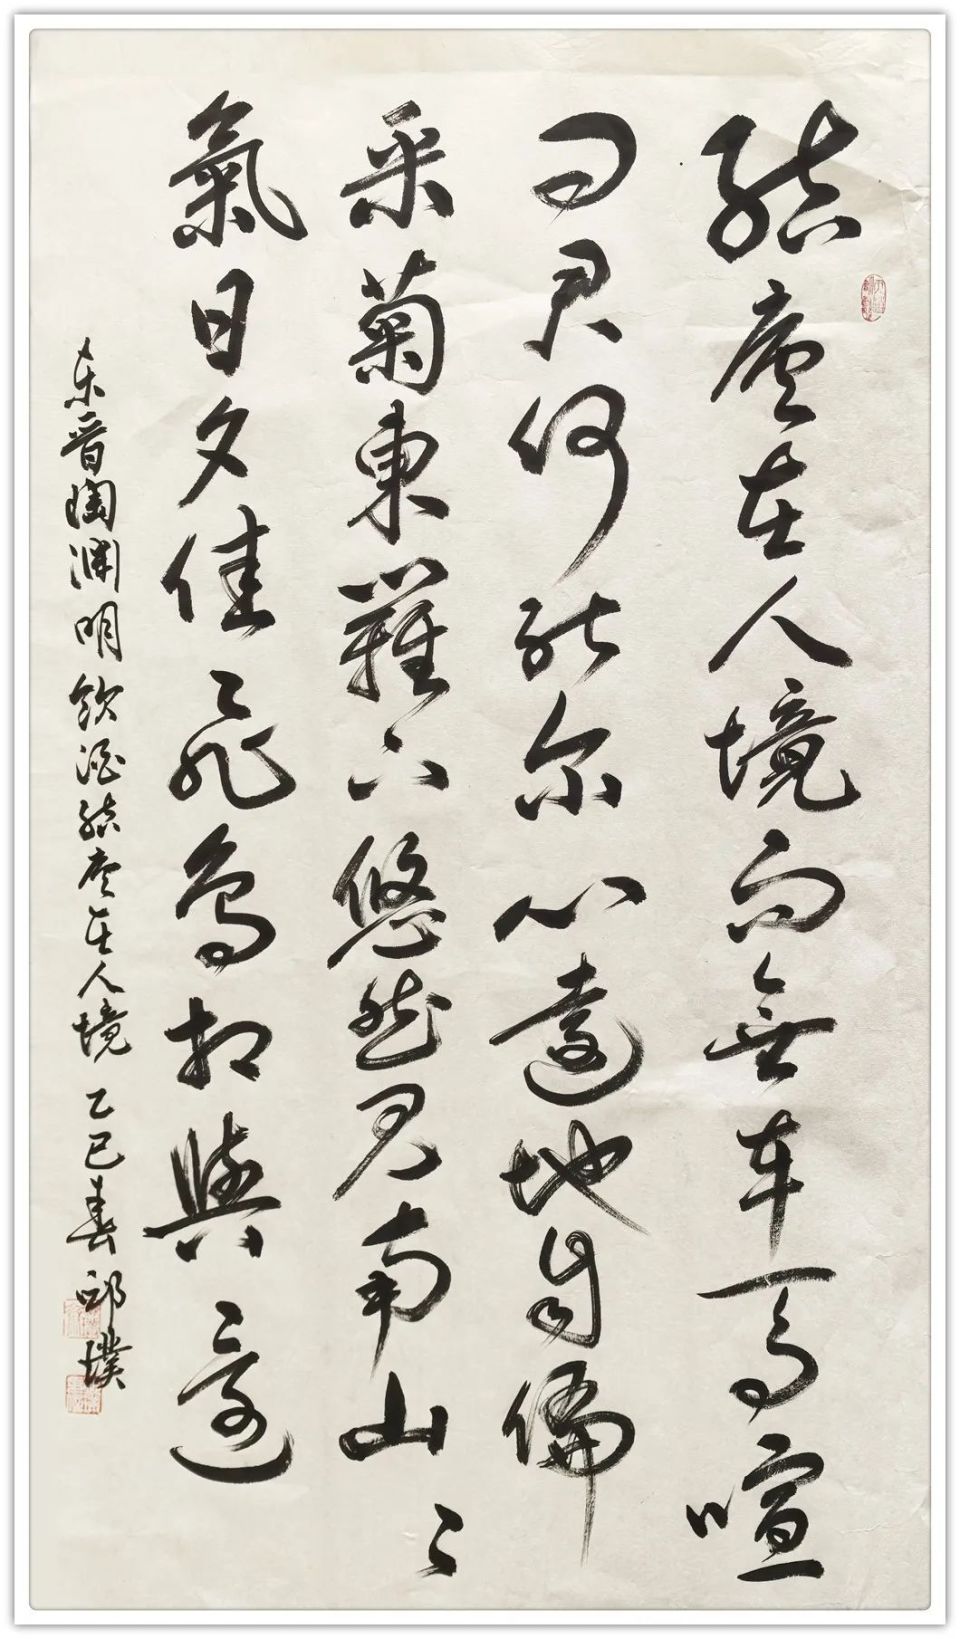 結廬在人境而無車馬喧
问君何能尔心遠地自偏
采菊東籬下悠然見南山〻
氣日夕佳飛鳥相與還
东晋陶淵明飲酒結廬在人境 乙巳春 邱墣